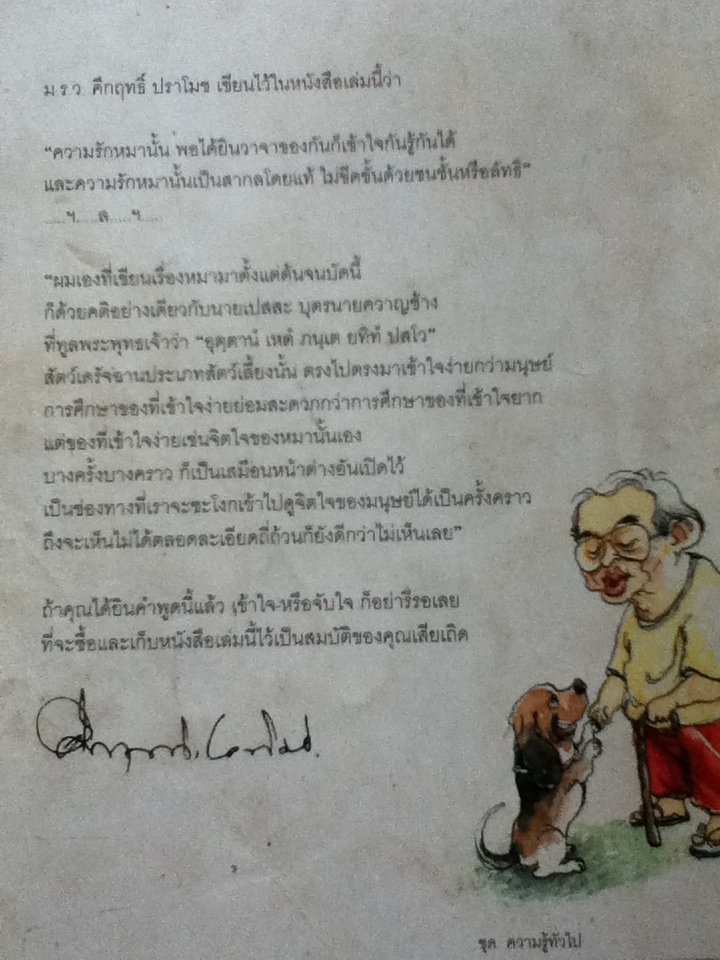 ม.ร.ว. คึกฤทธิ์ ปราโมช เขียนไว้ในหนังสือเล่มนี้ว่า
“ความรักหมานั้น พอได้ยินวาจาของกันก็เข้าใจกันรู้กันได้
และความรักหมานั้นเป็นสากลโดยแท้ ไม่ขีดขั้นด้วยชนชั้นหรือลัทธิ”
.....ฯ.....ล.....ฯ.....
“ผมเองที่เขียนเรื่องหมามาตั้งแต่ต้นจนบัดนี้
ก็ด้วยคติอย่างเดียวกับนายเปสสะ บุตรนายควาญช้าง
ที่ทูลพระพุทธเจ้าว่า “อุตฺตานํ เหตํ ภนฺเต ยทิทํ ปสโว”
สัตว์เดรัจฉานประเภทสัตว์เลี้ยงนั้น ตรงไปตรงมาเข้าใจง่ายกว่ามนุษย์
การศึกษาของที่เข้าใจง่ายย่อมสะดวกกว่าการศึกษาของที่เข้าใจยาก
แต่ของที่เข้าใจง่ายเช่นจิตใจของหมานั้นเอง
บางครั้งบางคราว ก็เป็นเสมือนหน้าต่างอันเปิดไว้
เป็นช่องทางที่เราจะชะโงกเข้าไปดูจิตใจของมนุษย์ได้เป็นครั้งคราว
ถึงจะเห็นไม่ได้ตลอดละเอียดถี่ถ้วนก็ยังดีกว่าไม่เห็นเลย”
ถ้าคุณได้ยินคำพูดนี้แล้ว เข้าใจ หรือจับใจ ก็อย่ารีรอเลย
ที่จะซื้อและเก็บหนังสือเล่มนี้ไว้เป็นสมบัติของคุณเสียเถิด
ชุด ความรู้ทั่วไป